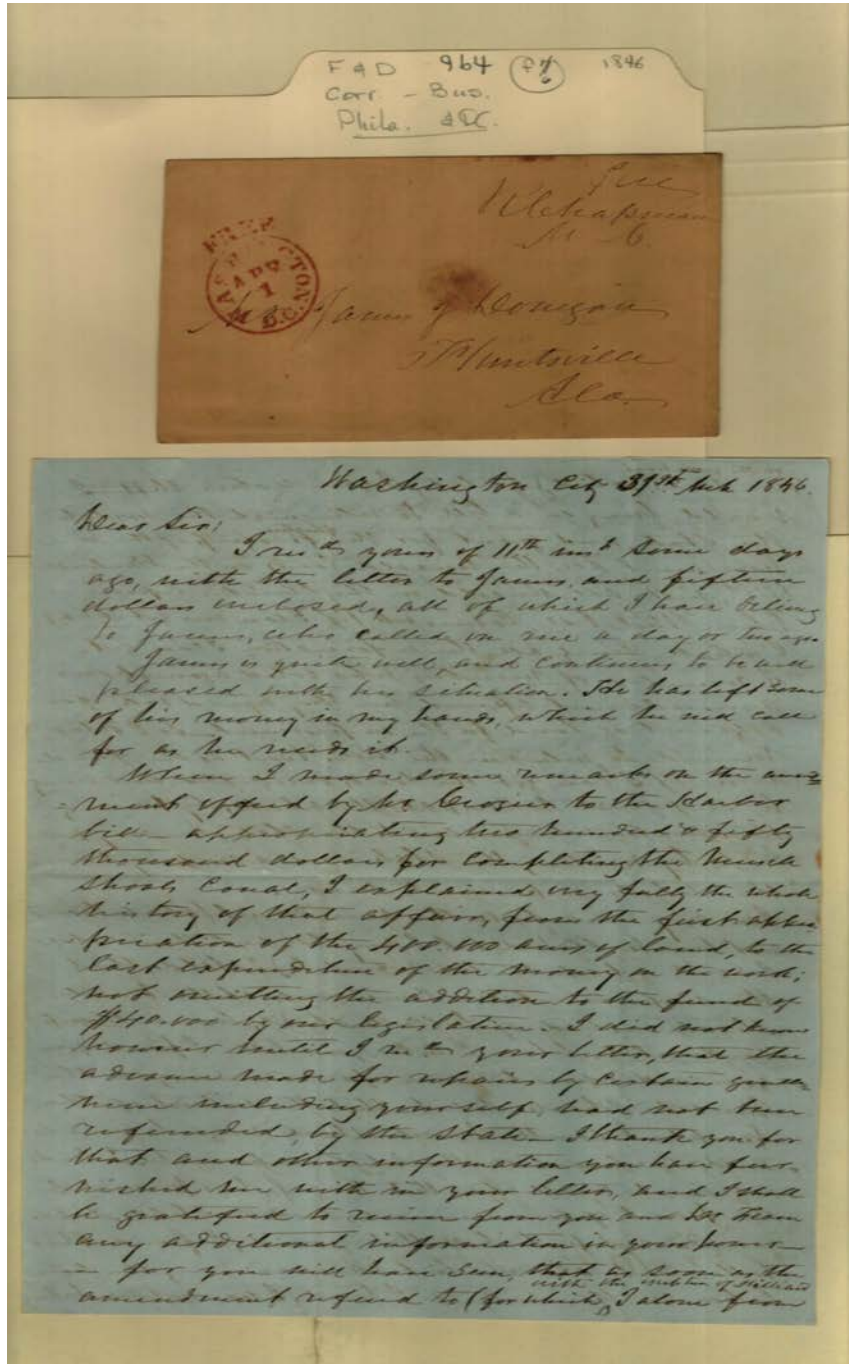 F & D 964 1846
Corr. - Bus.
Phila. & DC.
Free
R Chapman
M. C.
FREE
WASHINGTON D.C.
APR
1
Mr. James J Donegan
Huntsville
Ala.
Washington City 31st Mch 1846.
Dear Sir:
I recd yours of 11th inst some days
ago, with the letter to James, and fifteen
dollars enclosed, all of which I have deliverd
to James, who called on me a day or two ago
James is quite well, and continues to be well
pleased with his situation. He has left some
of his money in my hands, which he will call
for as he needs it.
When I made some remarks on the amend-
ment offered by Mr Crozier to the Harbor
bill - appropriating two hundred & fifty
thousand dollars for completing the Muscle
Shoals Canal, I explained very fully the whole
history of that affair, from the first appro
priation of the 400.000 acres of land, to the
last expenditure of the money on the work;
not omitting the addition to the fund of
$40.000 by our legislature. I did not know
however until I recd your letter, that the
advance made for repairs by certain gentle-
men including yourself, had not been
refunded by the State - I thank you for
that and other information you have fur-
nished me with in your letter, and I shall
be gratified to receive from you and Dr Fearn
any additional information in your power -
- for you will have seen, that as soon as the
with the exception of Hilliard
amendment referred to (for which I alone from